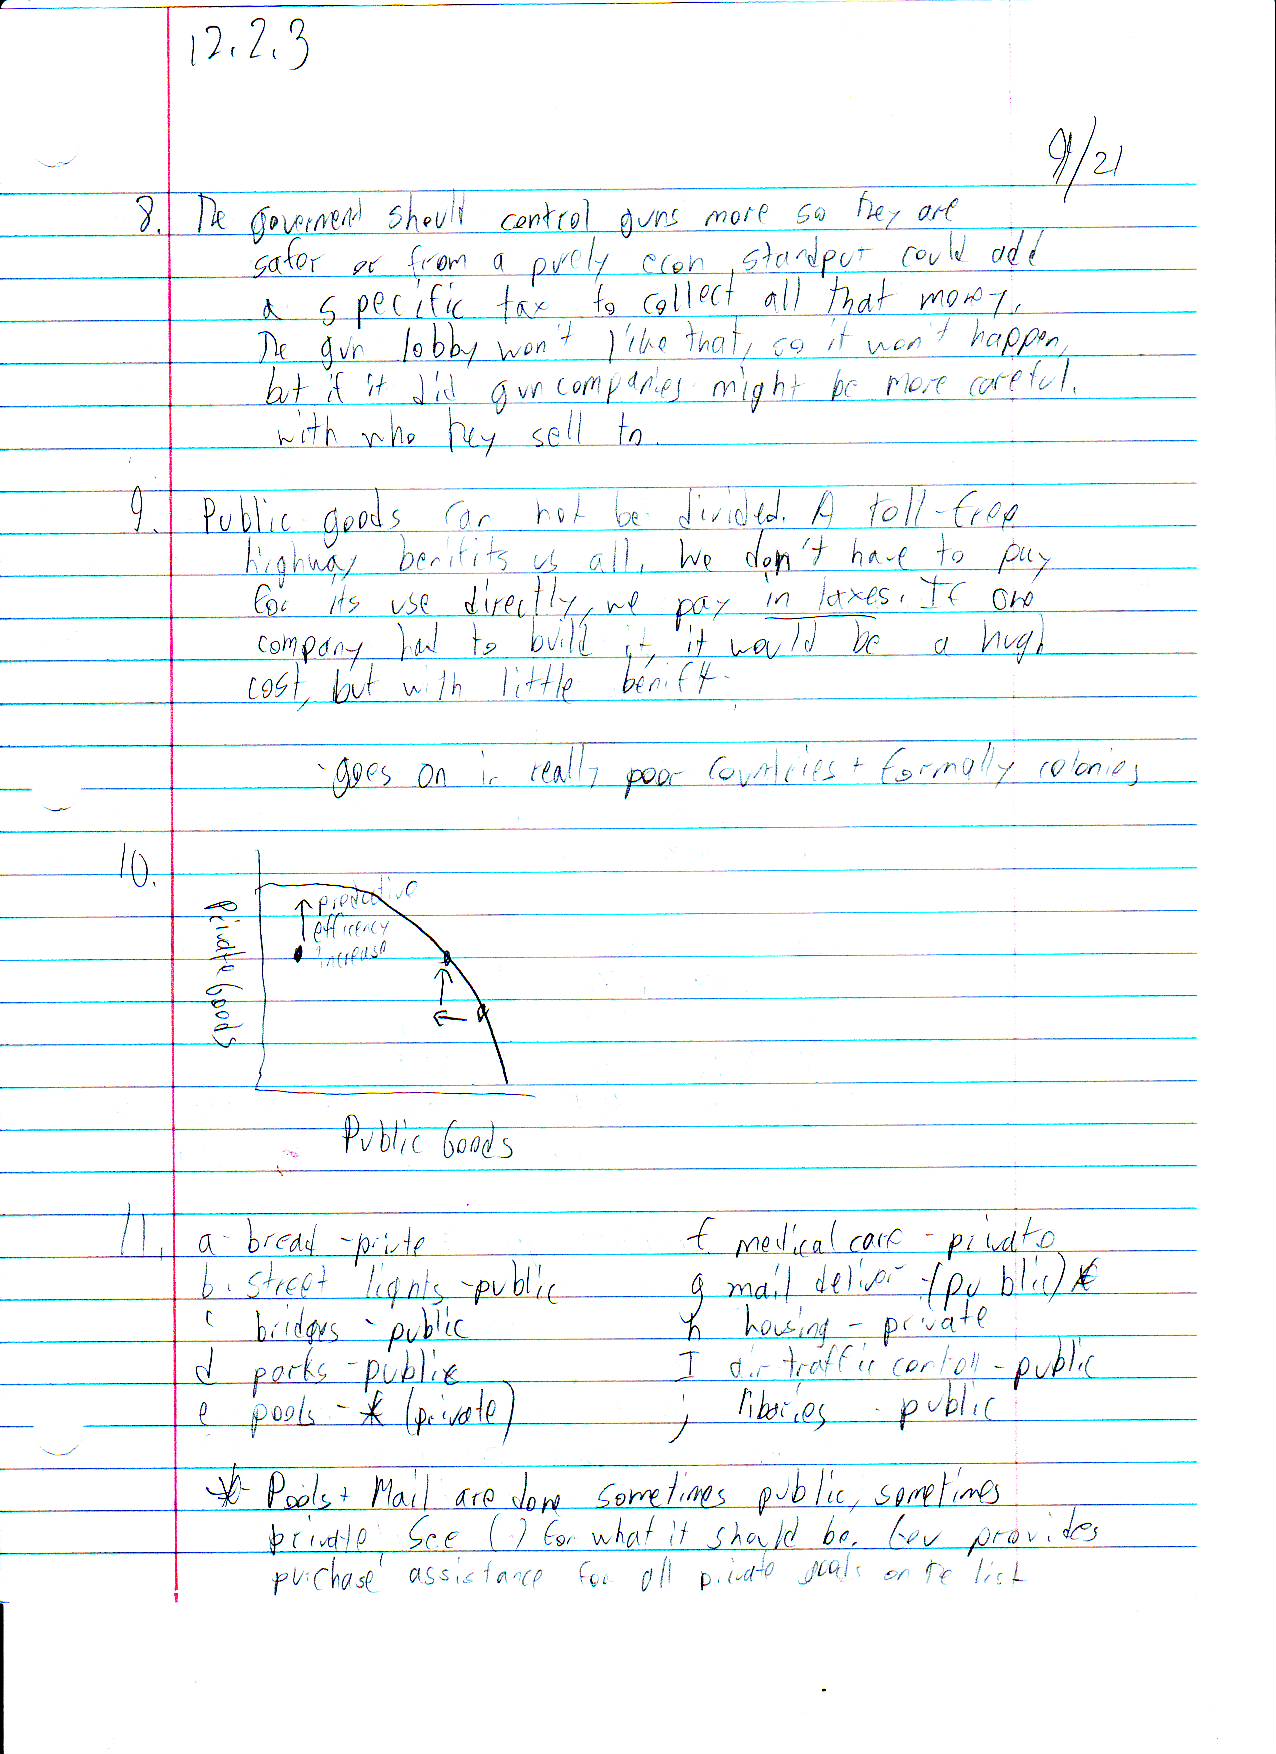 12.2.3
9/21
8. The governend should control guns more so they are
safer or from a purely econ standput could add
a specific tax to collect all that money.
The gun lobby won't like that, so it won't happen,
but if it did gun companies might be more careful.
with who they sell to.
9. Public goods can not be divided. A toll-free
highway benifits us all. We don't have to pay
for its use directly, we pay in taxes. If one
company had to build it, it would be a hugh
cost, but with little benift.
- goes on in really poor countries + formally colonies
10.
productive
efficency
increase
Private Goods
Public Goods
11. a. bread - privte
b. street lights - public
c bridges - public
d parks - public
e pools - * (private)
f medical care - private
g mail deliver - (public) *
h housing - private
I air traffic contoll - public
j libaries - public
* Pools + Mail are done sometimes public, sometimes
private. See ( ) for what it should be. Gov provides
purchase assistance for all private goods on the list